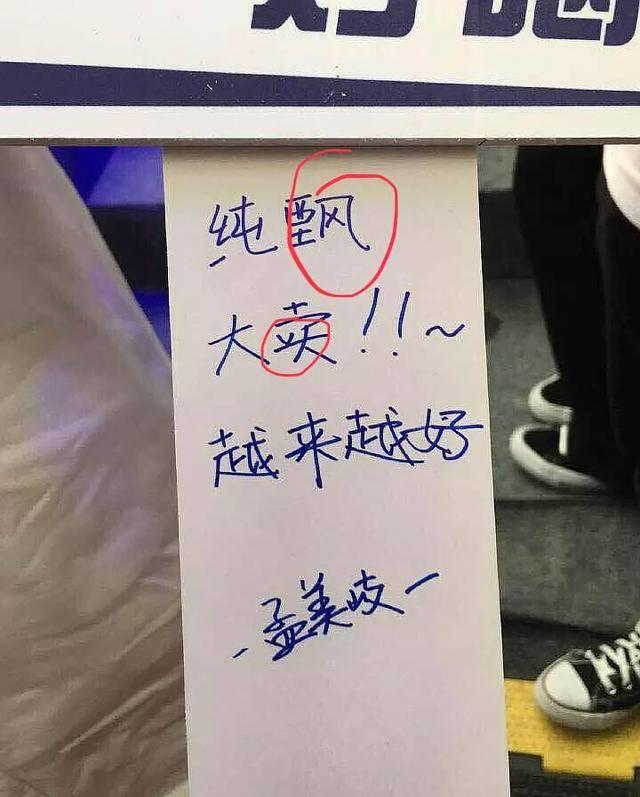 纯甄
大卖!!~
越来越好
-孟美岐-